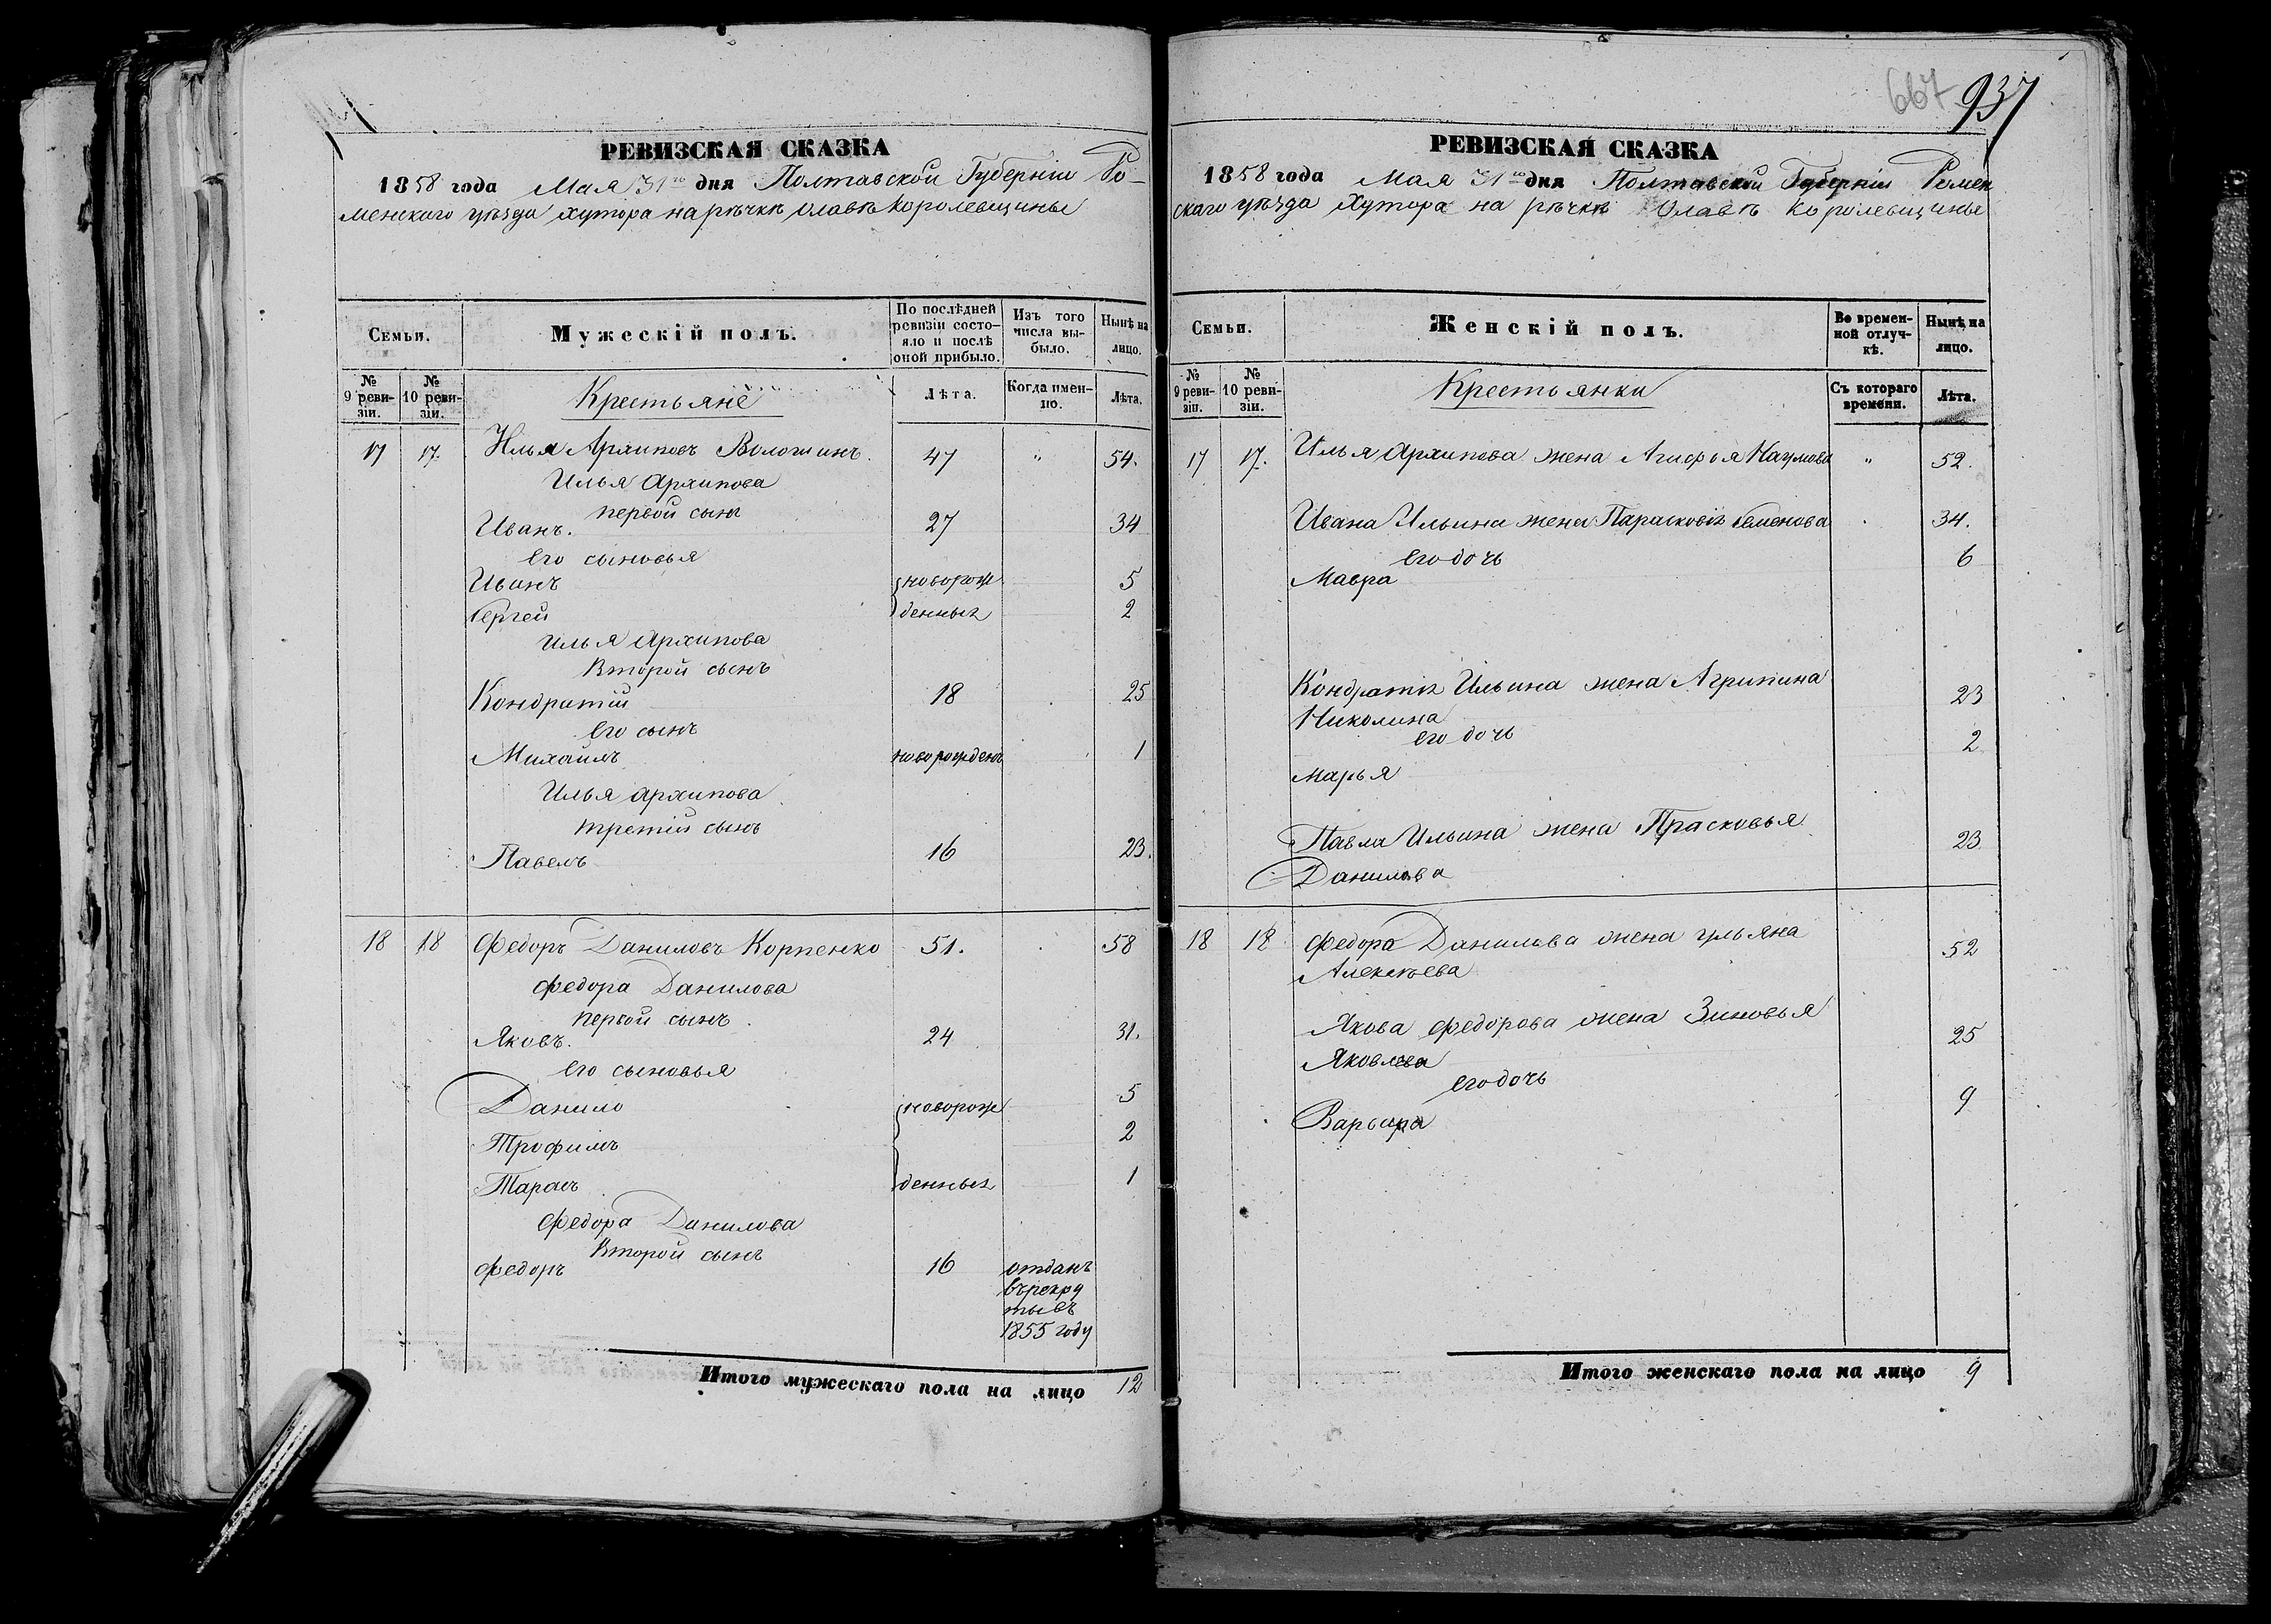 РЕВИЗСКАЯ СКАЗКА
1858 года Мая 31го дня Полтавской Губерніи Ро-
менского уѣзда хутора на рѣчкѣ Олавѣ Королевщины
Семьи.
Мужескій полъ.
По послѣдней ревизіи состо-
яло и послѣ
оной прибыло.
Изъ того
числа вы-
было.
Нынѣ на
лицо.
№ 9 реви-
зіи.
№ 10 реви-
зіи.
Крестьяне
Лѣта.
Когда имен-
но.
Лѣта.
17 17. Илья Архиповъ Волошинъ. 47 " 54.
Илья Архипова
первой сынъ
Иванъ. 27 34
его сыновья
Иванъ новорож 5
Сергей денныхъ 2
Илья Архипова
Второй сынъ
Кондратій 18 25
его сынъ
Михаилъ новорожденъ 1
Илья Архипова
третій сынъ
Павелъ 16 23.
18 18 Федоръ Даниловъ Корпенко 51. 58
Федора Данилова
первой сынъ
Яковъ. 24 31.
его сыновья
Данило новорож 5
Трофимъ 2
Тарасъ денныхъ 1
Федора Данилова
Второй сынъ
Федоръ 16 отданъ
въ рекру
ты въ
1855 году
Итого мужескаго пола на лицо 12
667 937
РЕВИЗСКАЯ СКАЗКА
1858 года Мая 31го дня Полтавской Губерніи Ромен
скаго уѣзда Хутора на рѣчкѣ Олавѣ Королевщины
Семьи.
Женскій полъ.
Во времен-
ной отлуч-
кѣ.
Нынѣ на
лицо.
№ 9 реви-
зіи.
№ 10 реви-
зіи.
Крестьянки
Съ котораго
времени.
Лѣта.
17 17. Илья Архипова жена Агафья Наумова " 52.
Ивана Ильина жена Парасковія Семенова 34.
его дочь 6
Мавра
Кондратія Ильина жена Агрипина 23
Николина
его дочь 2
Марья
Павла Ильина жена Прасковья 23
Данилова
18 18 Федора Данилова жена Ульяна 52
Алексѣева
Якова Федорова жена Зиновья 25
Яковлева
его дочь 9
Варвара
Итого женскаго пола на лицо 9